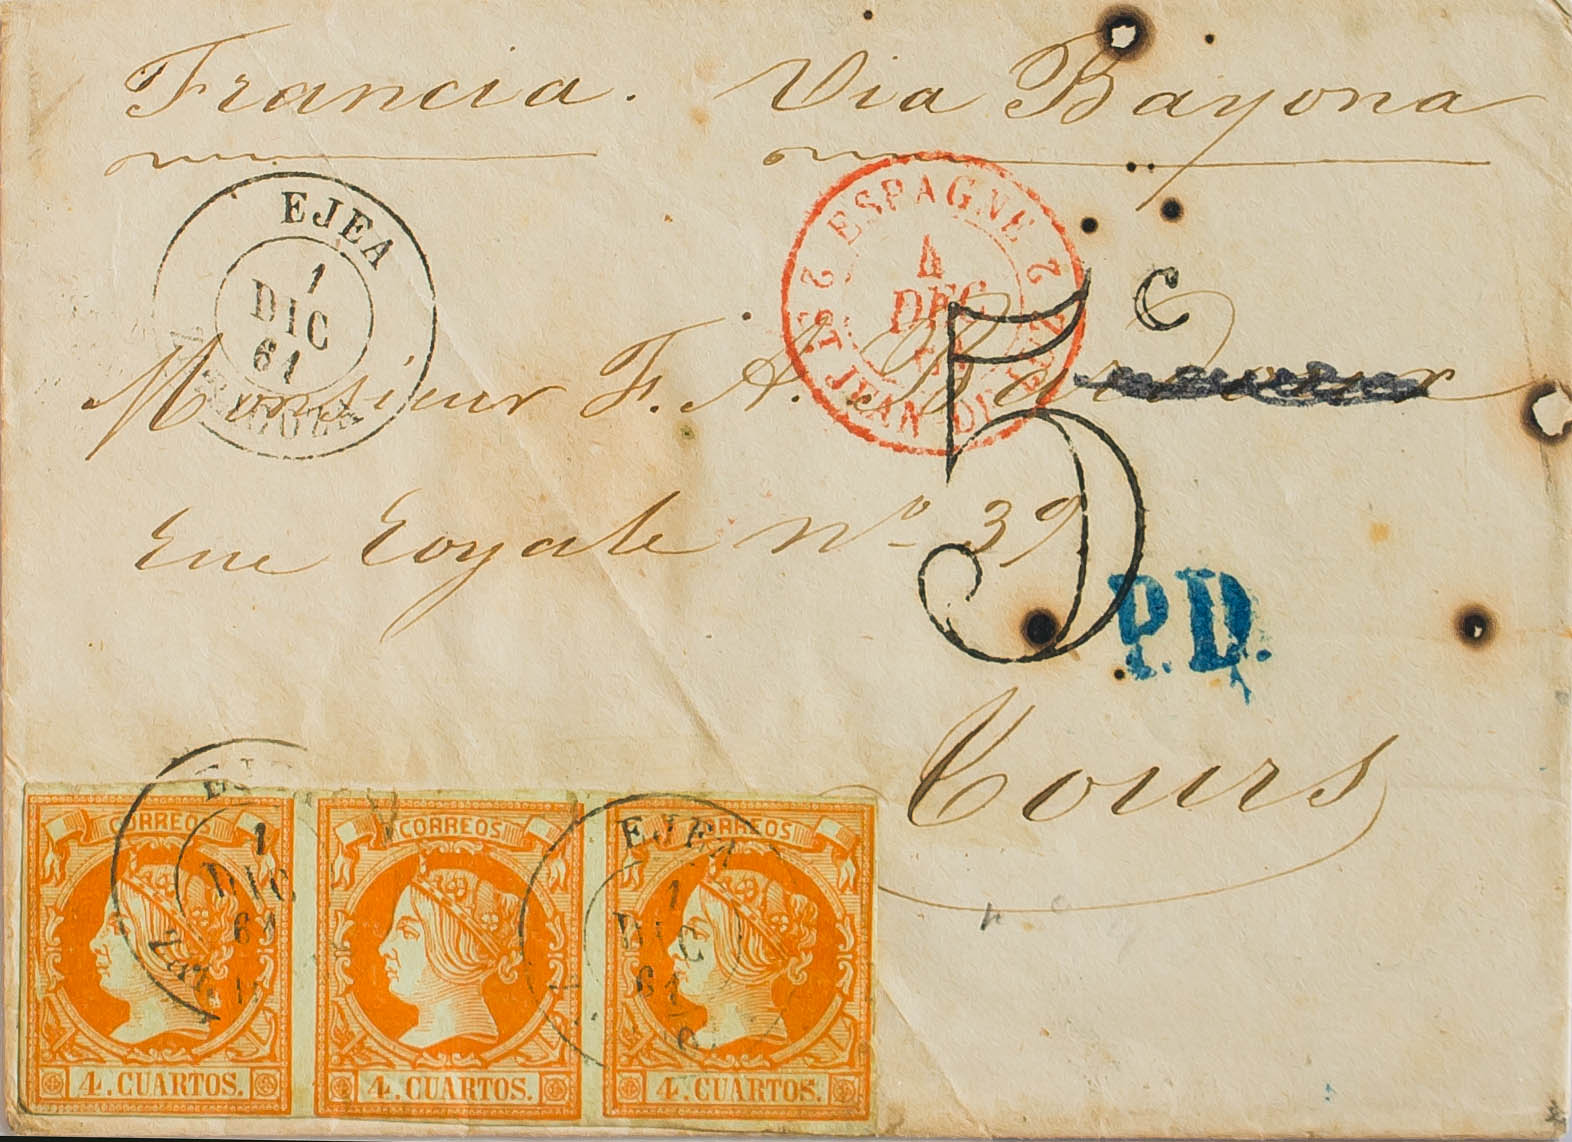 Francia. Via Bayona
EJEA
1
DIC
61
ZARAGOZA
2 ESPAGNE 2
4
DEC
61
ST JEAN DE LUZ
5 c
Monsieur F. A.
Rue Royale Nº 39
P.D.
Tours
1
DIC
61
EJEA
1
DIC
61
CORREOS
4. CUARTOS.
CORREOS
4. CUARTOS.
CORREOS
4. CUARTOS.